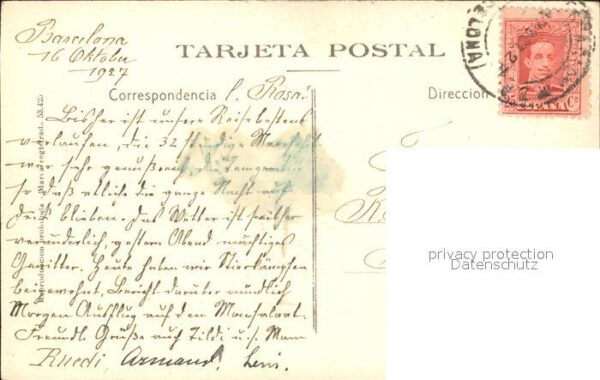 Barcelona
16 Oktober
1927
TARJETA POSTAL
Correspondencia
l. Rosa!
Direccion
Bisher ist unsere Reise bestens
verlaufen, die 32 stündige
war sehr genußreich, die
so daß etliche die ganze Nacht auf
Deck blieben. Das Wetter ist seither
veränderlich, gestern Abend mächtiges
Gewitter. Heute haben wir Stierkämpfen
beigewohnt, Bericht darüber mündlich
Morgen Ausflug auf den Monsalvat.
Freundl. Grüße auch Tildi u. s. Mann
Ruedi, Armand, Leni.
privacy protection
Datenschutz